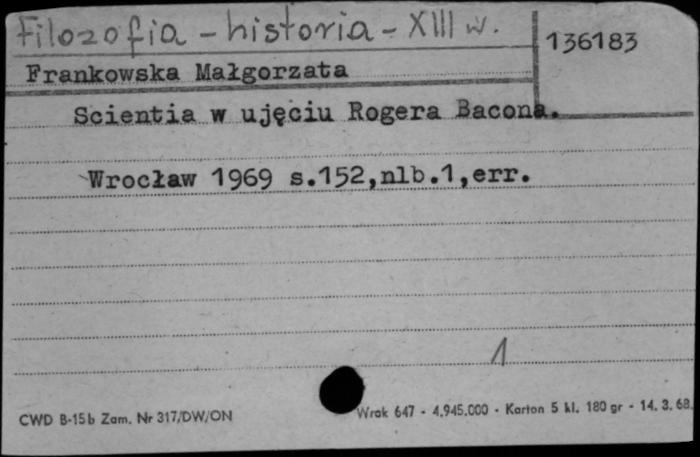 Filozofia - historia - XIII w.
136183
Frankowska Małgorzata
Scientia w ujęciu Rogera Bacona.
Wrocław 1969 s.152,nlb.1,err.
1
CWD B-15b Zam. Nr 317/DW/ON
Wrak 647 - 4.945.000 - Karton 5 kl. 180 gr - 14. 3. 68.